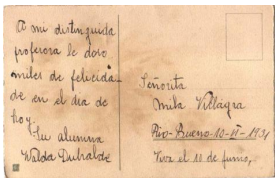 A mi distinguida
profesora le doio
miles de felicida-
de en el dia de
hoy.
Su alumna
Walda Dubralde
Señorita
Mila Villagra
Rio-Bueno-10-VI-1931
Viva el 10 de junio,